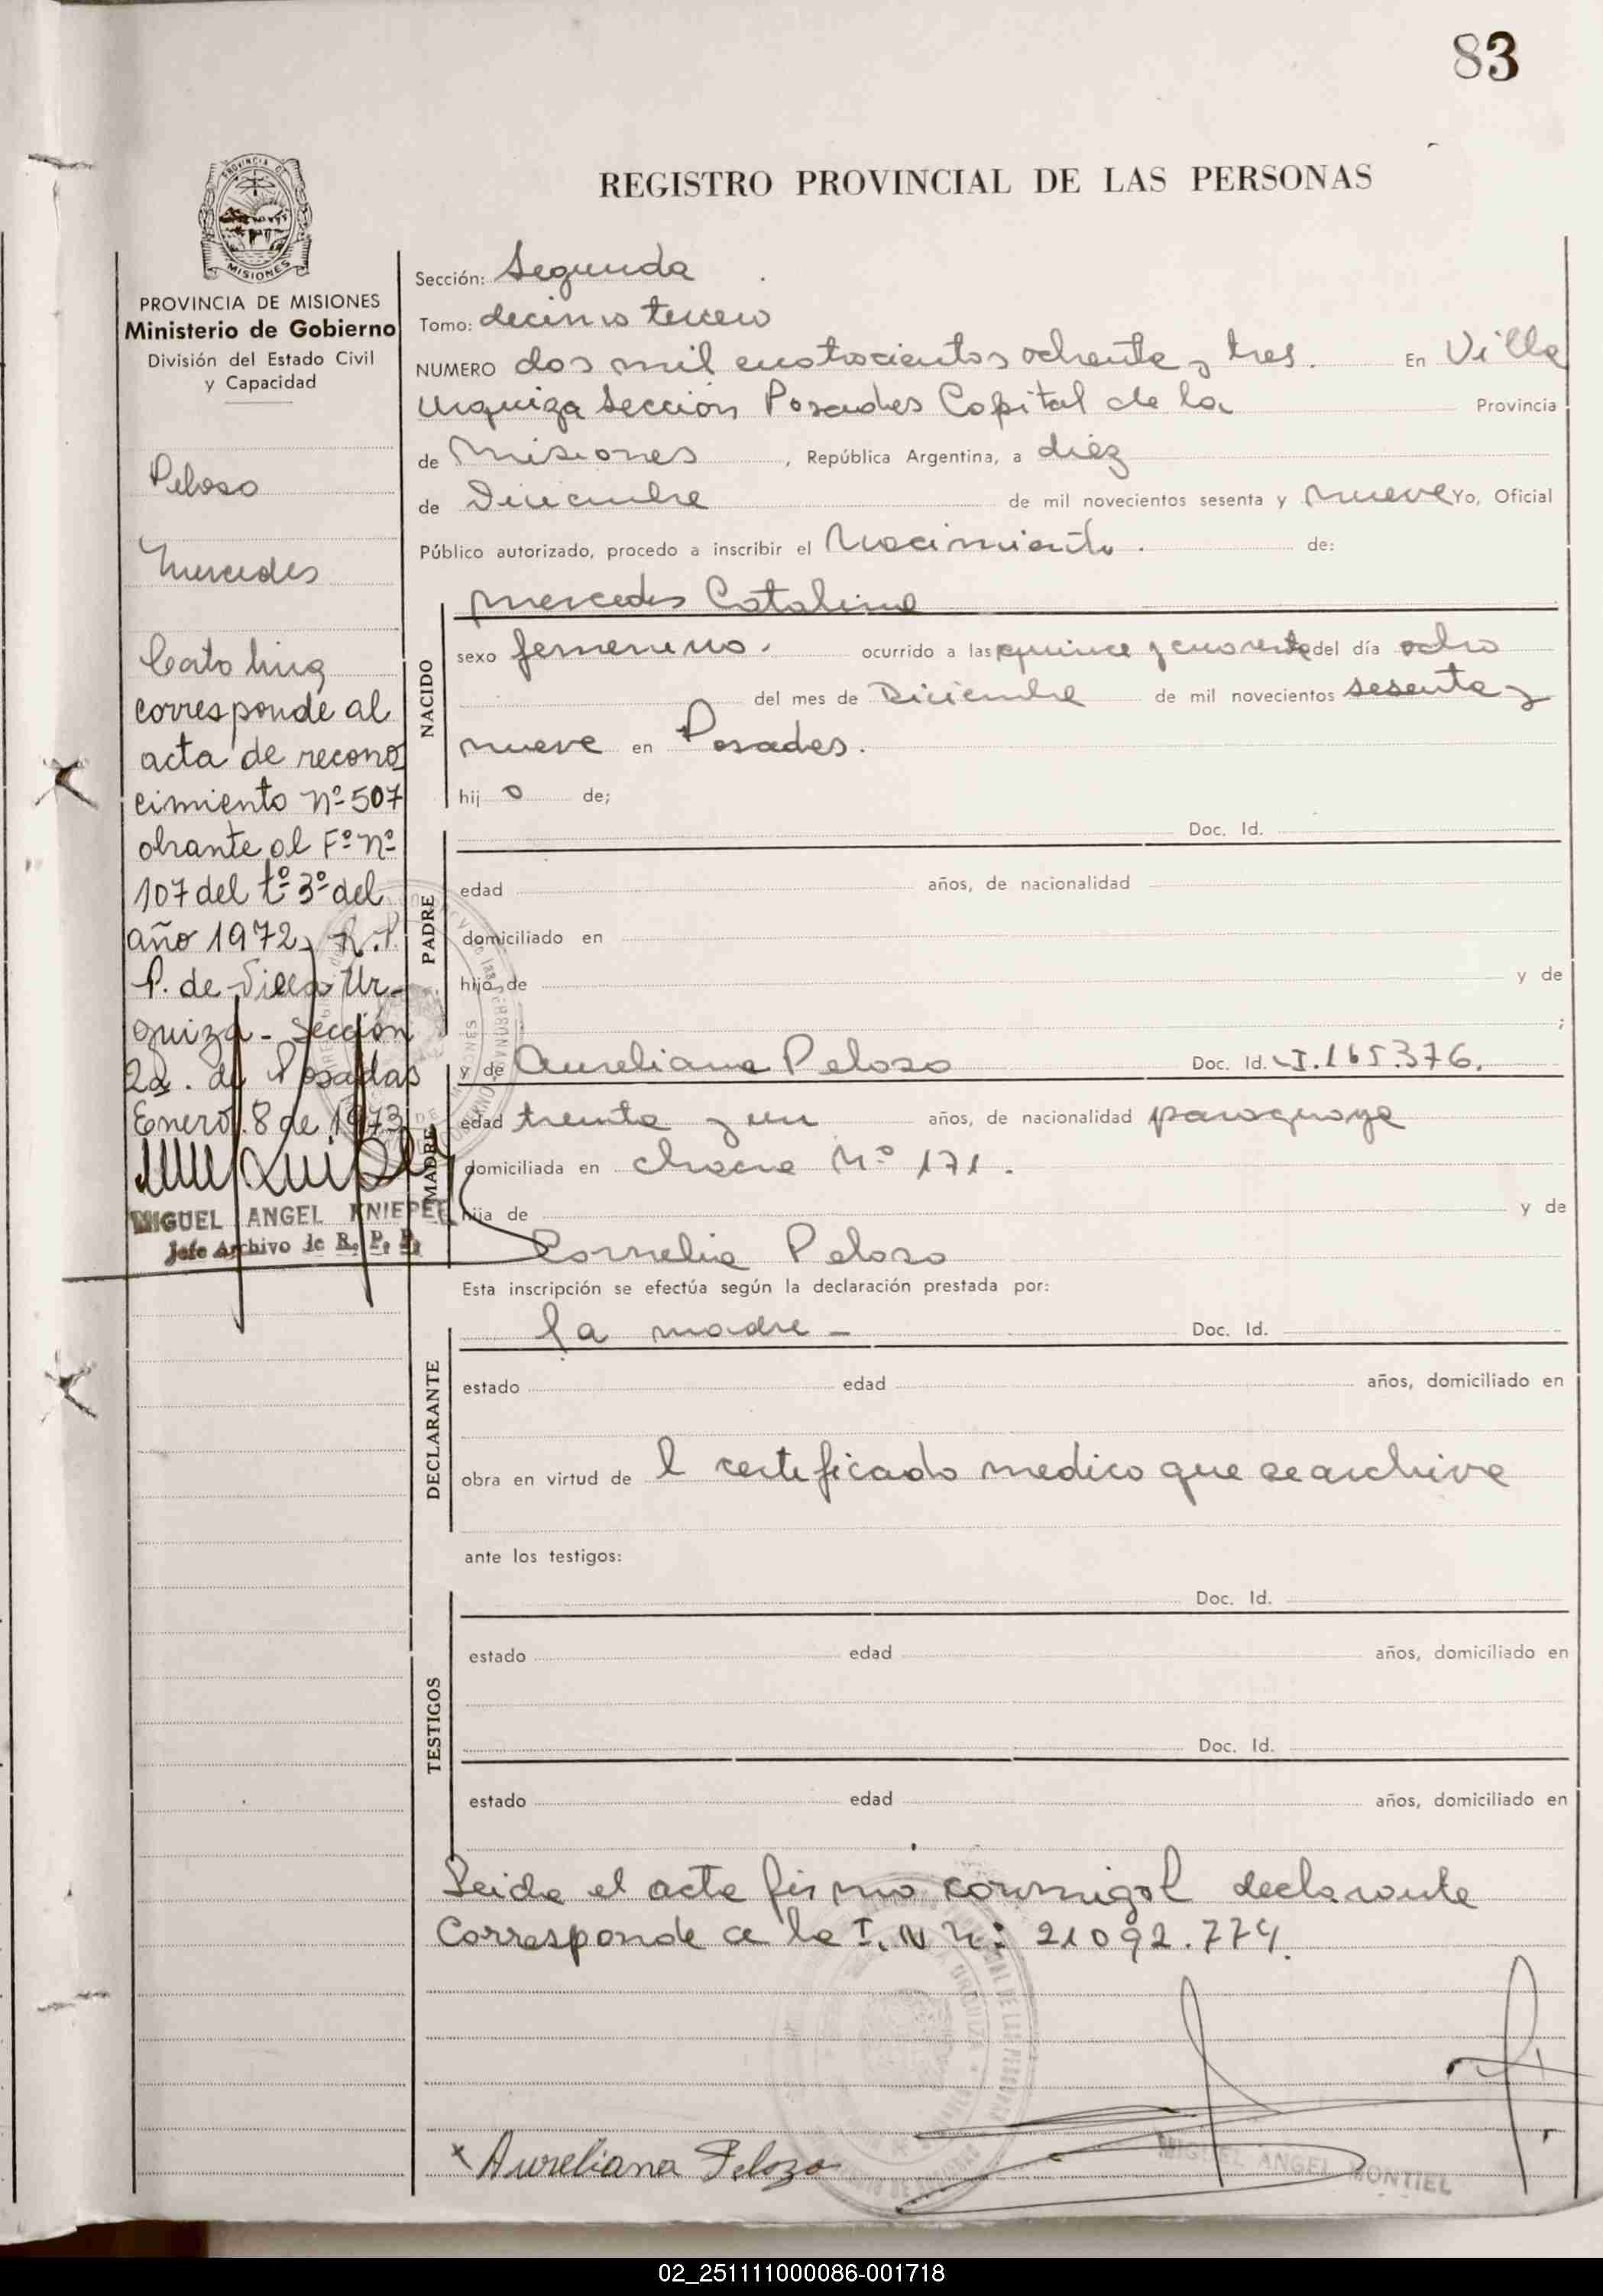 83
REGISTRO PROVINCIAL DE LAS PERSONAS
PROVINCIA DE
MISIONES
PROVINCIA DE MISIONES
Ministerio de Gobierno
División del Estado Civil
y Capacidad
Peloso
Mercedes
Catalina
corresponde al
acta de recono
cimiento Nº 507
obrante al Fº Nº
107 del tº 3º del
año 1972, R.P.
P. de Villa Ur-
quiza - Sección
2a. de Posadas
Enero 8 de 1973
MIGUEL ANGEL KNIEPEL
Jefe Archivo de R. P. P.
Sección: Segunda
Tomo: decimo tercero
NUMERO dos mil cuatrocientos ochenta y tres. En Villa
Urquiza Sección Posadas Capital de la Provincia
de Misiones, República Argentina, a diez
de Diciembre de mil novecientos sesenta y nueve Yo, Oficial
Público autorizado, procedo a inscribir el Nacimiento. de:
Mercedes Catalina
NACIDO
sexo femenino. ocurrido a las quince y cuarenta del día ocho
del mes de Diciembre de mil novecientos sesenta y
nueve en Posadas.
hij o de;
Doc. Id.
PADRE
edad años, de nacionalidad
domiciliado en
hijo de y de
;
y de Aureliana Peloso Doc. Id. I.165.376.
MADRE
edad treinta y un años, de nacionalidad paraguaya
domiciliada en chacra Nº 171.
hija de y de
Cornelia Peloso
Esta inscripción se efectúa según la declaración prestada por:
la madre - Doc. Id.
DECLARANTE
estado edad años, domiciliado en
obra en virtud de l certificado medico que se archiva
ante los testigos:
Doc. Id.
TESTIGOS
estado edad años, domiciliado en
Doc. Id.
estado edad años, domiciliado en
Leida el acta firmó conmigo l declarante
Corresponde a la I. N N: 21092.774.
x Aureliana Pelozo
MIGUEL ANGEL MONTIEL
02_251111000086-001718